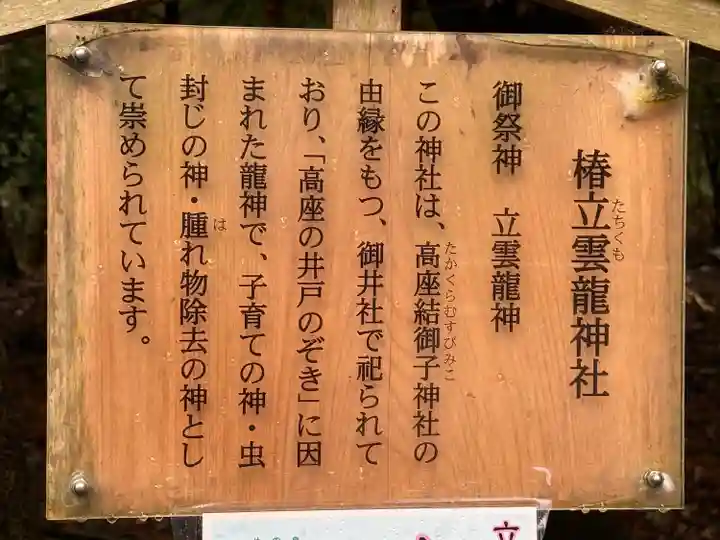 椿立雲龍神社
たちくも
御祭神　立雲龍神
この神社は、高座結御子神社の
たかくらむすびみこ
由縁をもつ、御井社で祀られて
おり、「高座の井戸のぞき」に因
まれた龍神で、子育ての神・虫
封じの神・腫れ物除去の神とし
は
て崇められています。
立